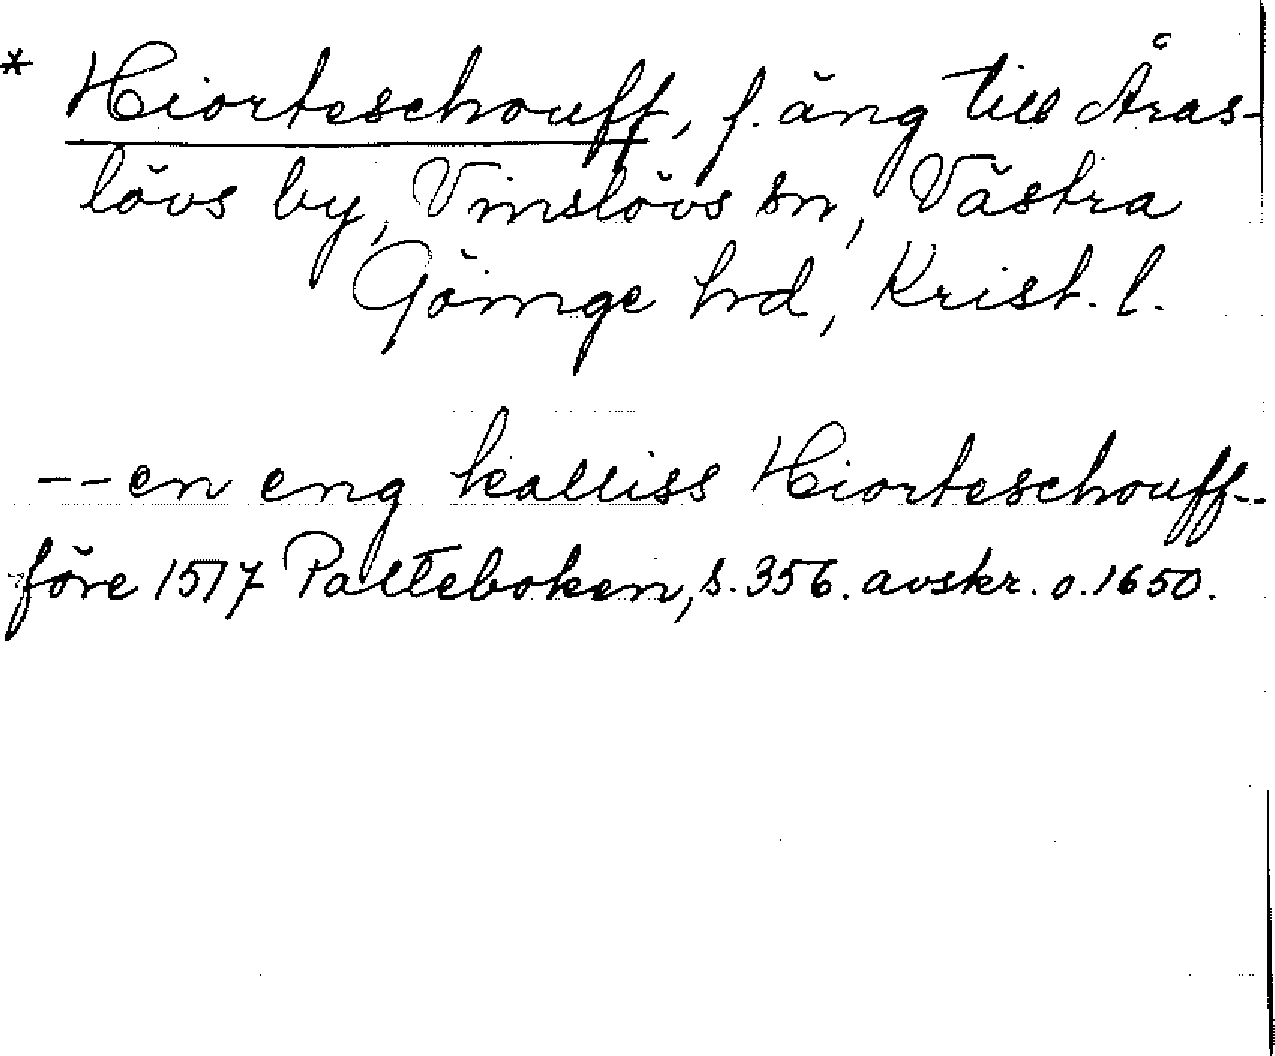 * Hiorteschouff, f. äng till Åras-
lövs by, Vinslövs sn, Västra
Göinge hrd, Krist. l.
-- en eng kalliss Hiorteschouff--
före 1517 Palteboken, s. 356. avskr. o. 1650.